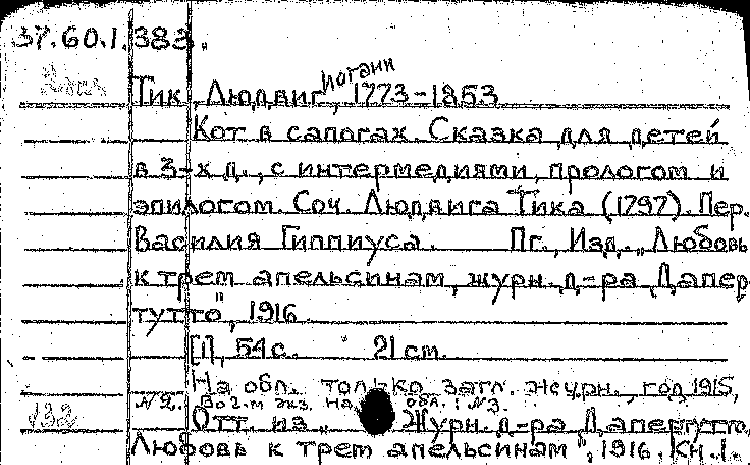 37.60.1.383.
Тик, Людвиг, Иоганн 1773-1853
Кот в сапогах. Сказка для детей
в 3-х д., с интермедиями, прологом и
эпилогом. Соч. Людвига Тика (1797). Пер.
Василия Гиппиуса. Пг., Изд. „Любовь
к трем апельсинам, журн. д-ра Дапер-
тутто", 1916.
[1], 54 с. 21 см.
На обл. только загл. журн., год 1915,
№2. Во 2-м экз. на обл.: №3.
132
Отт. из „Журн. д-ра Дапертутто,
Любовь к трем апельсинам", 1916. Кн. 1.